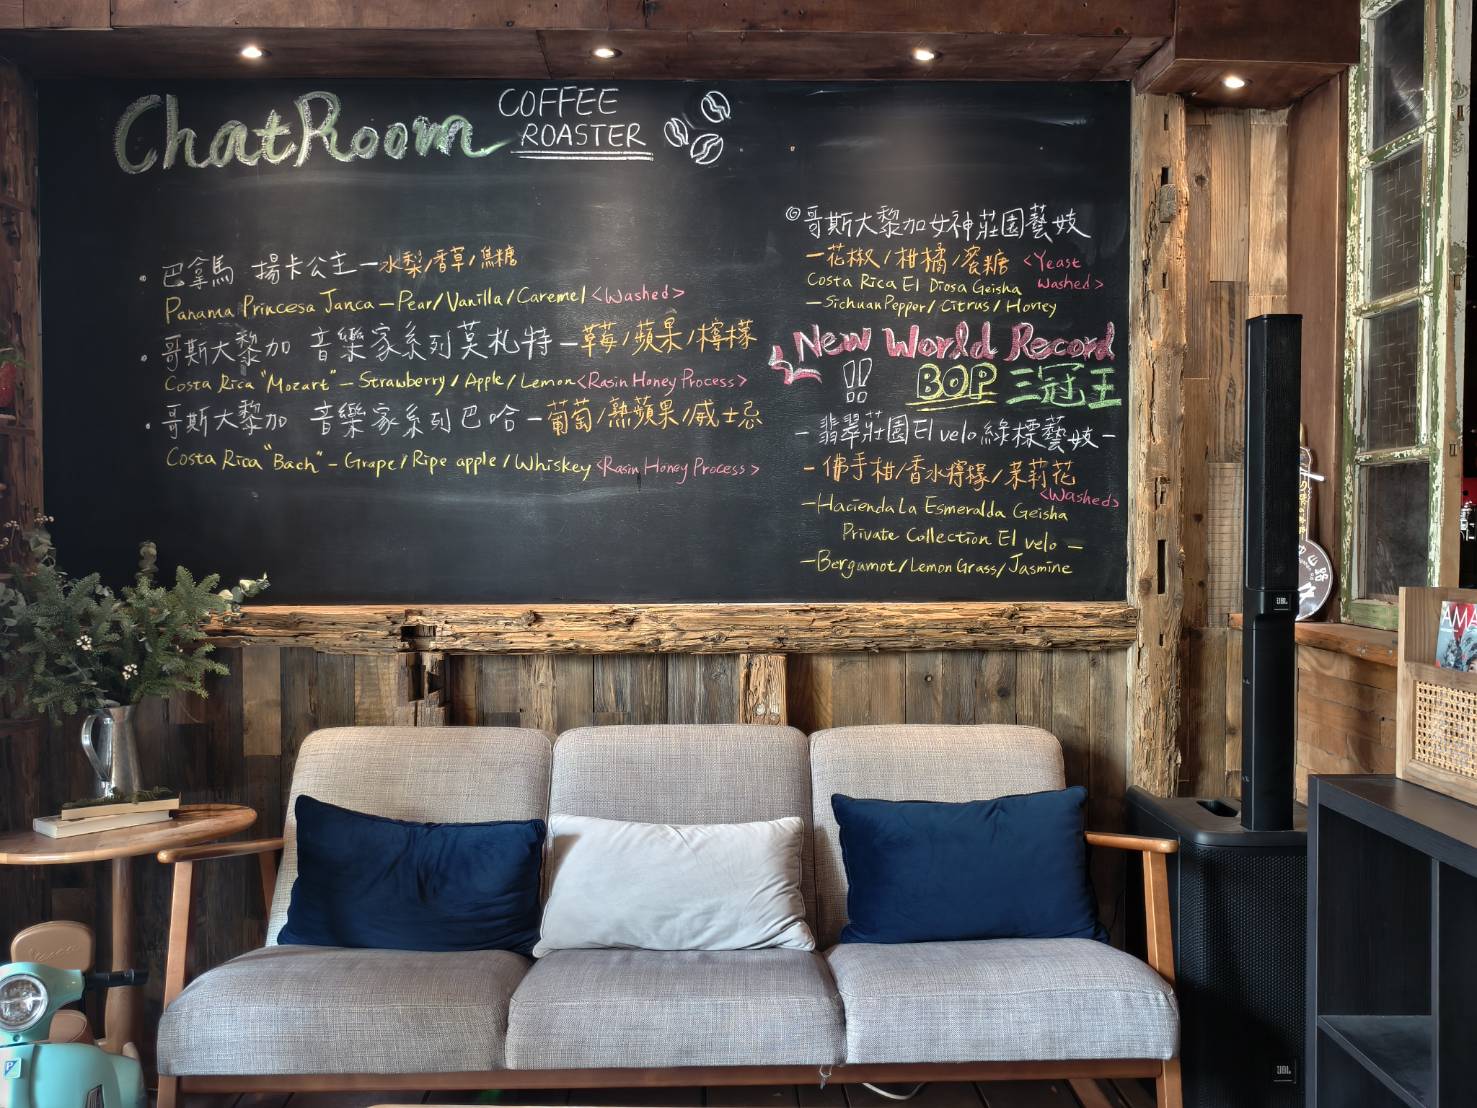 ChatRoom COFFEE
ROASTER
巴拿馬 揚卡公主—水梨/香草/焦糖
Panama Princesa Janca — Pear/Vanilla/Caremel <Washed>
哥斯大黎加 音樂家系列莫札特—草莓/蘋果/檸檬
Costa Rica "Mozart" — Strawberry/Apple/Lemon <Rasin Honey Process>
哥斯大黎加 音樂家系列巴哈—葡萄/熟蘋果/威士忌
Costa Rica "Bach" — Grape/Ripe apple/Whiskey <Rasin Honey Process>
◎哥斯大黎加女神莊園藝妓
—花椒/柑橘/蜜糖 <Yeast Washed>
Costa Rica El Diosa Geisha
—Sichuan Pepper/Citrus/Honey
New World Record
!! BOP 三冠王
-翡翠莊園El velo綠標藝妓-
-佛手柑/香水檸檬/茉莉花
<Washed>
—Hacienda La Esmeralda Geisha
Private Collection El velo —
—Bergamot/Lemon Grass/Jasmine
JBL
JBL
AMA